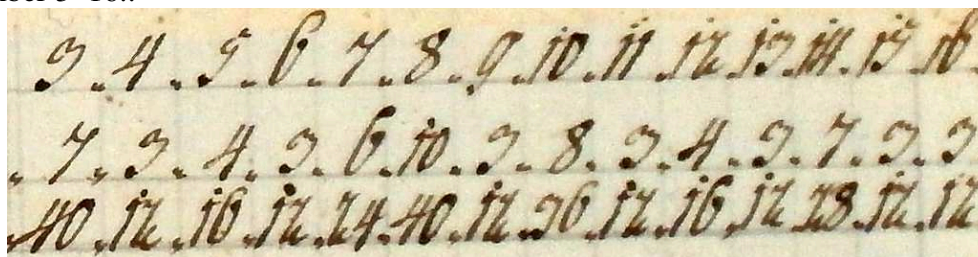 3 . 4 . 5 . 6 . 7 . 8 . 9 . 10 . 11 . 12 . 13 . 14 . 15 . 16
. 7 . 3 . 4 . 3 . 6 . 10 . 3 . 8 . 3 . 4 . 3 . 7 . 3 . 3
. 40 . 12 . 16 . 12 . 24 . 40 . 12 . 36 . 12 . 16 . 12 . 28 . 12 . 12